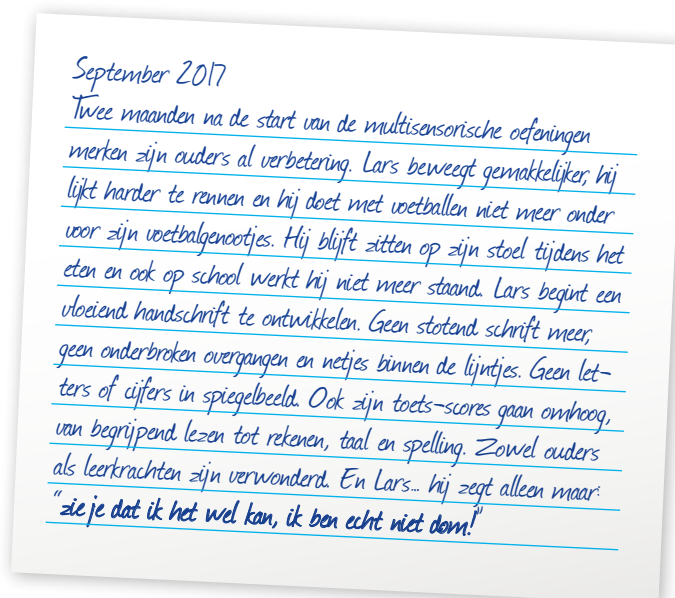 September 2017
Twee maanden na de start van de multisensorische oefeningen
merken zijn ouders al verbetering. Lars beweegt gemakkelijker, hij
lijkt harder te rennen en hij doet met voetballen niet meer onder
voor zijn voetbalgenootjes. Hij blijft zitten op zijn stoel tijdens het
eten en ook op school werkt hij niet meer staand. Lars begint een
vloeiend handschrift te ontwikkelen. Geen stotend schrift meer,
geen onderbroken overgangen en netjes binnen de lijntjes. Geen let-
ters of cijfers in spiegelbeeld. Ook zijn toets-scores gaan omhoog,
van begrijpend lezen tot rekenen, taal en spelling. Zowel ouders
als leerkrachten zijn verwonderd. En Lars... hij zegt alleen maar:
"zie je dat ik het wel kan, ik ben echt niet dom!"